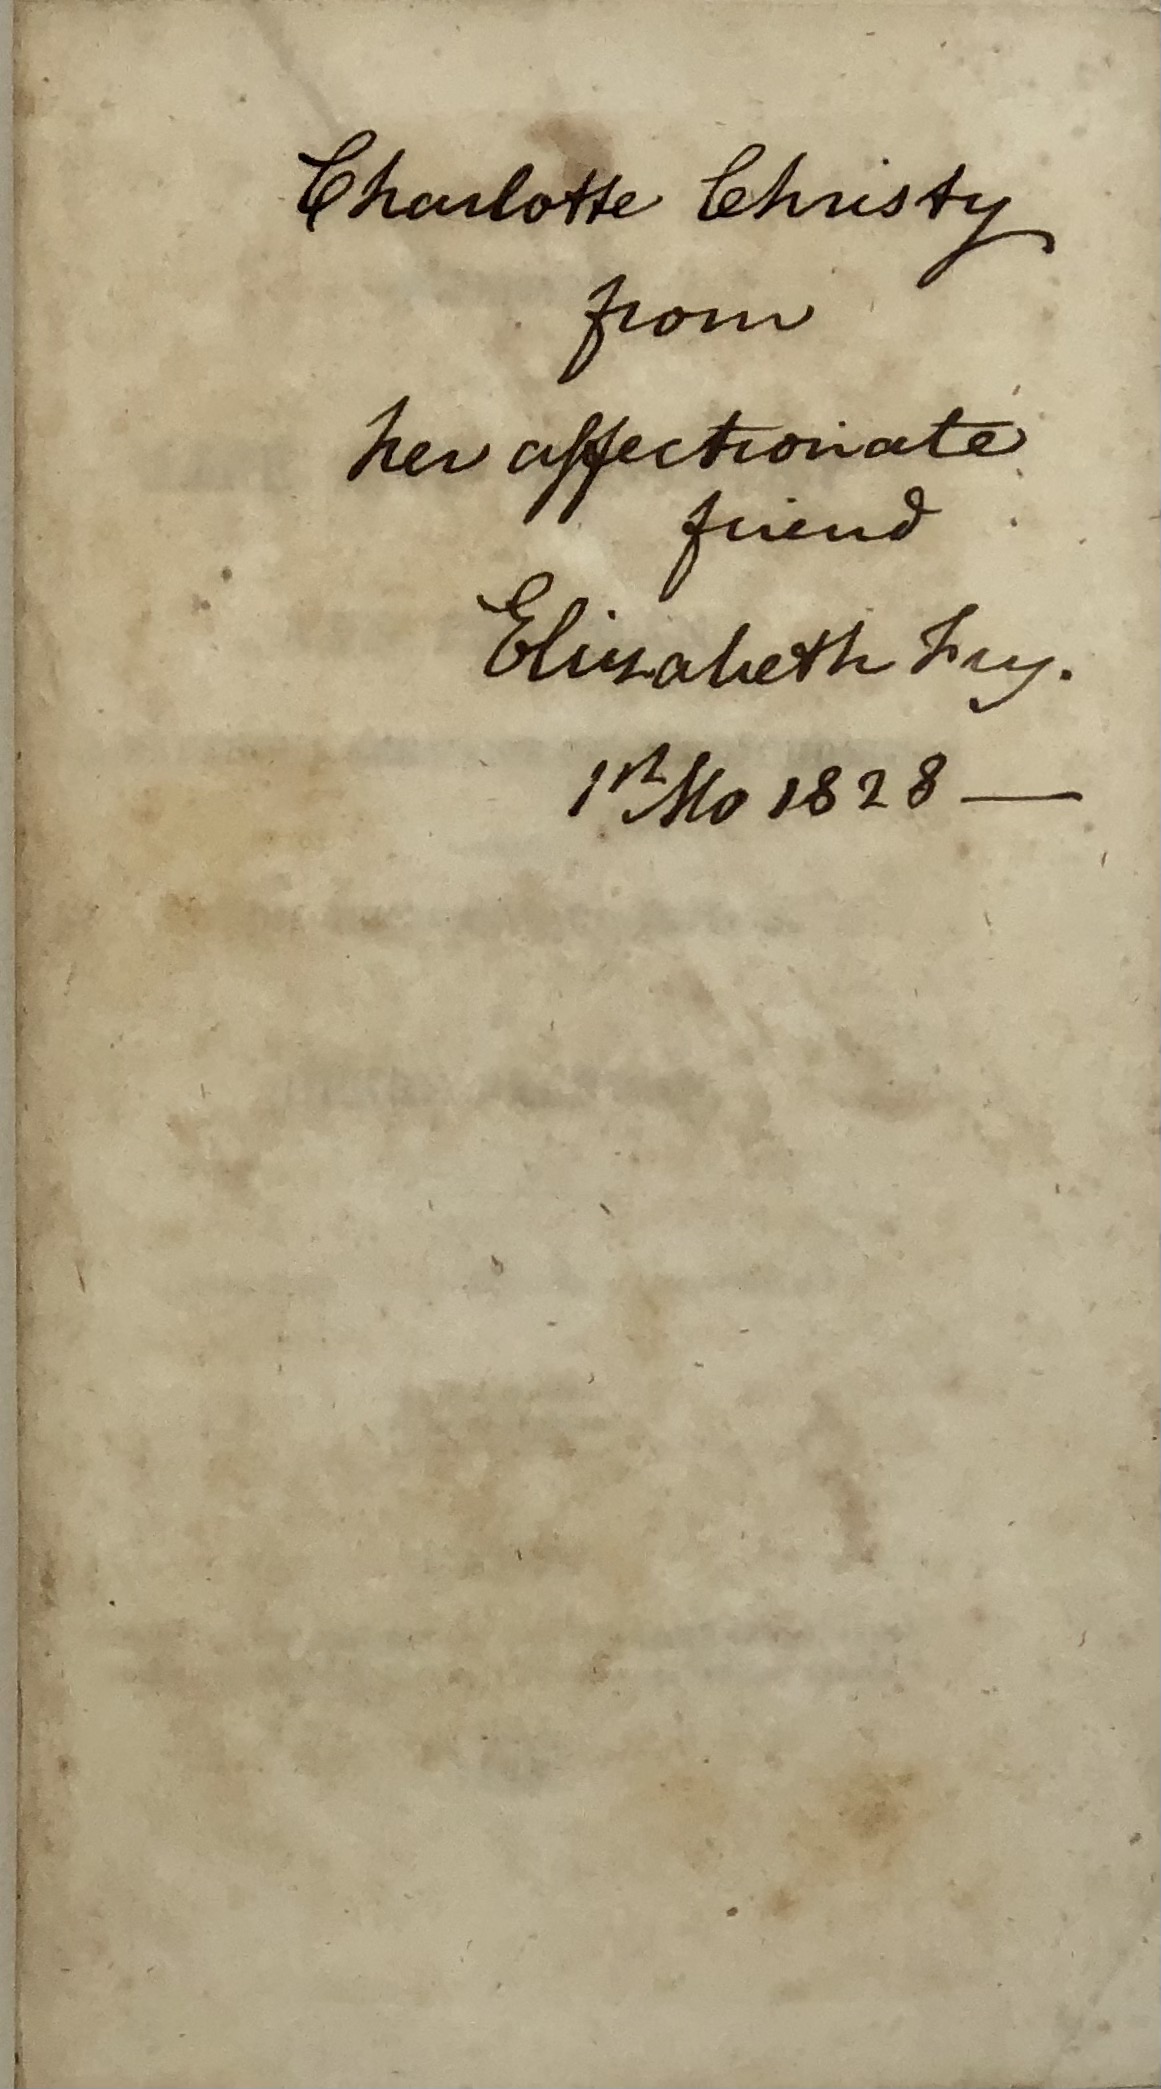 Charlotte Christy
from
her affectionate
friend
Elizabeth Fry.
1st Mo 1828 —